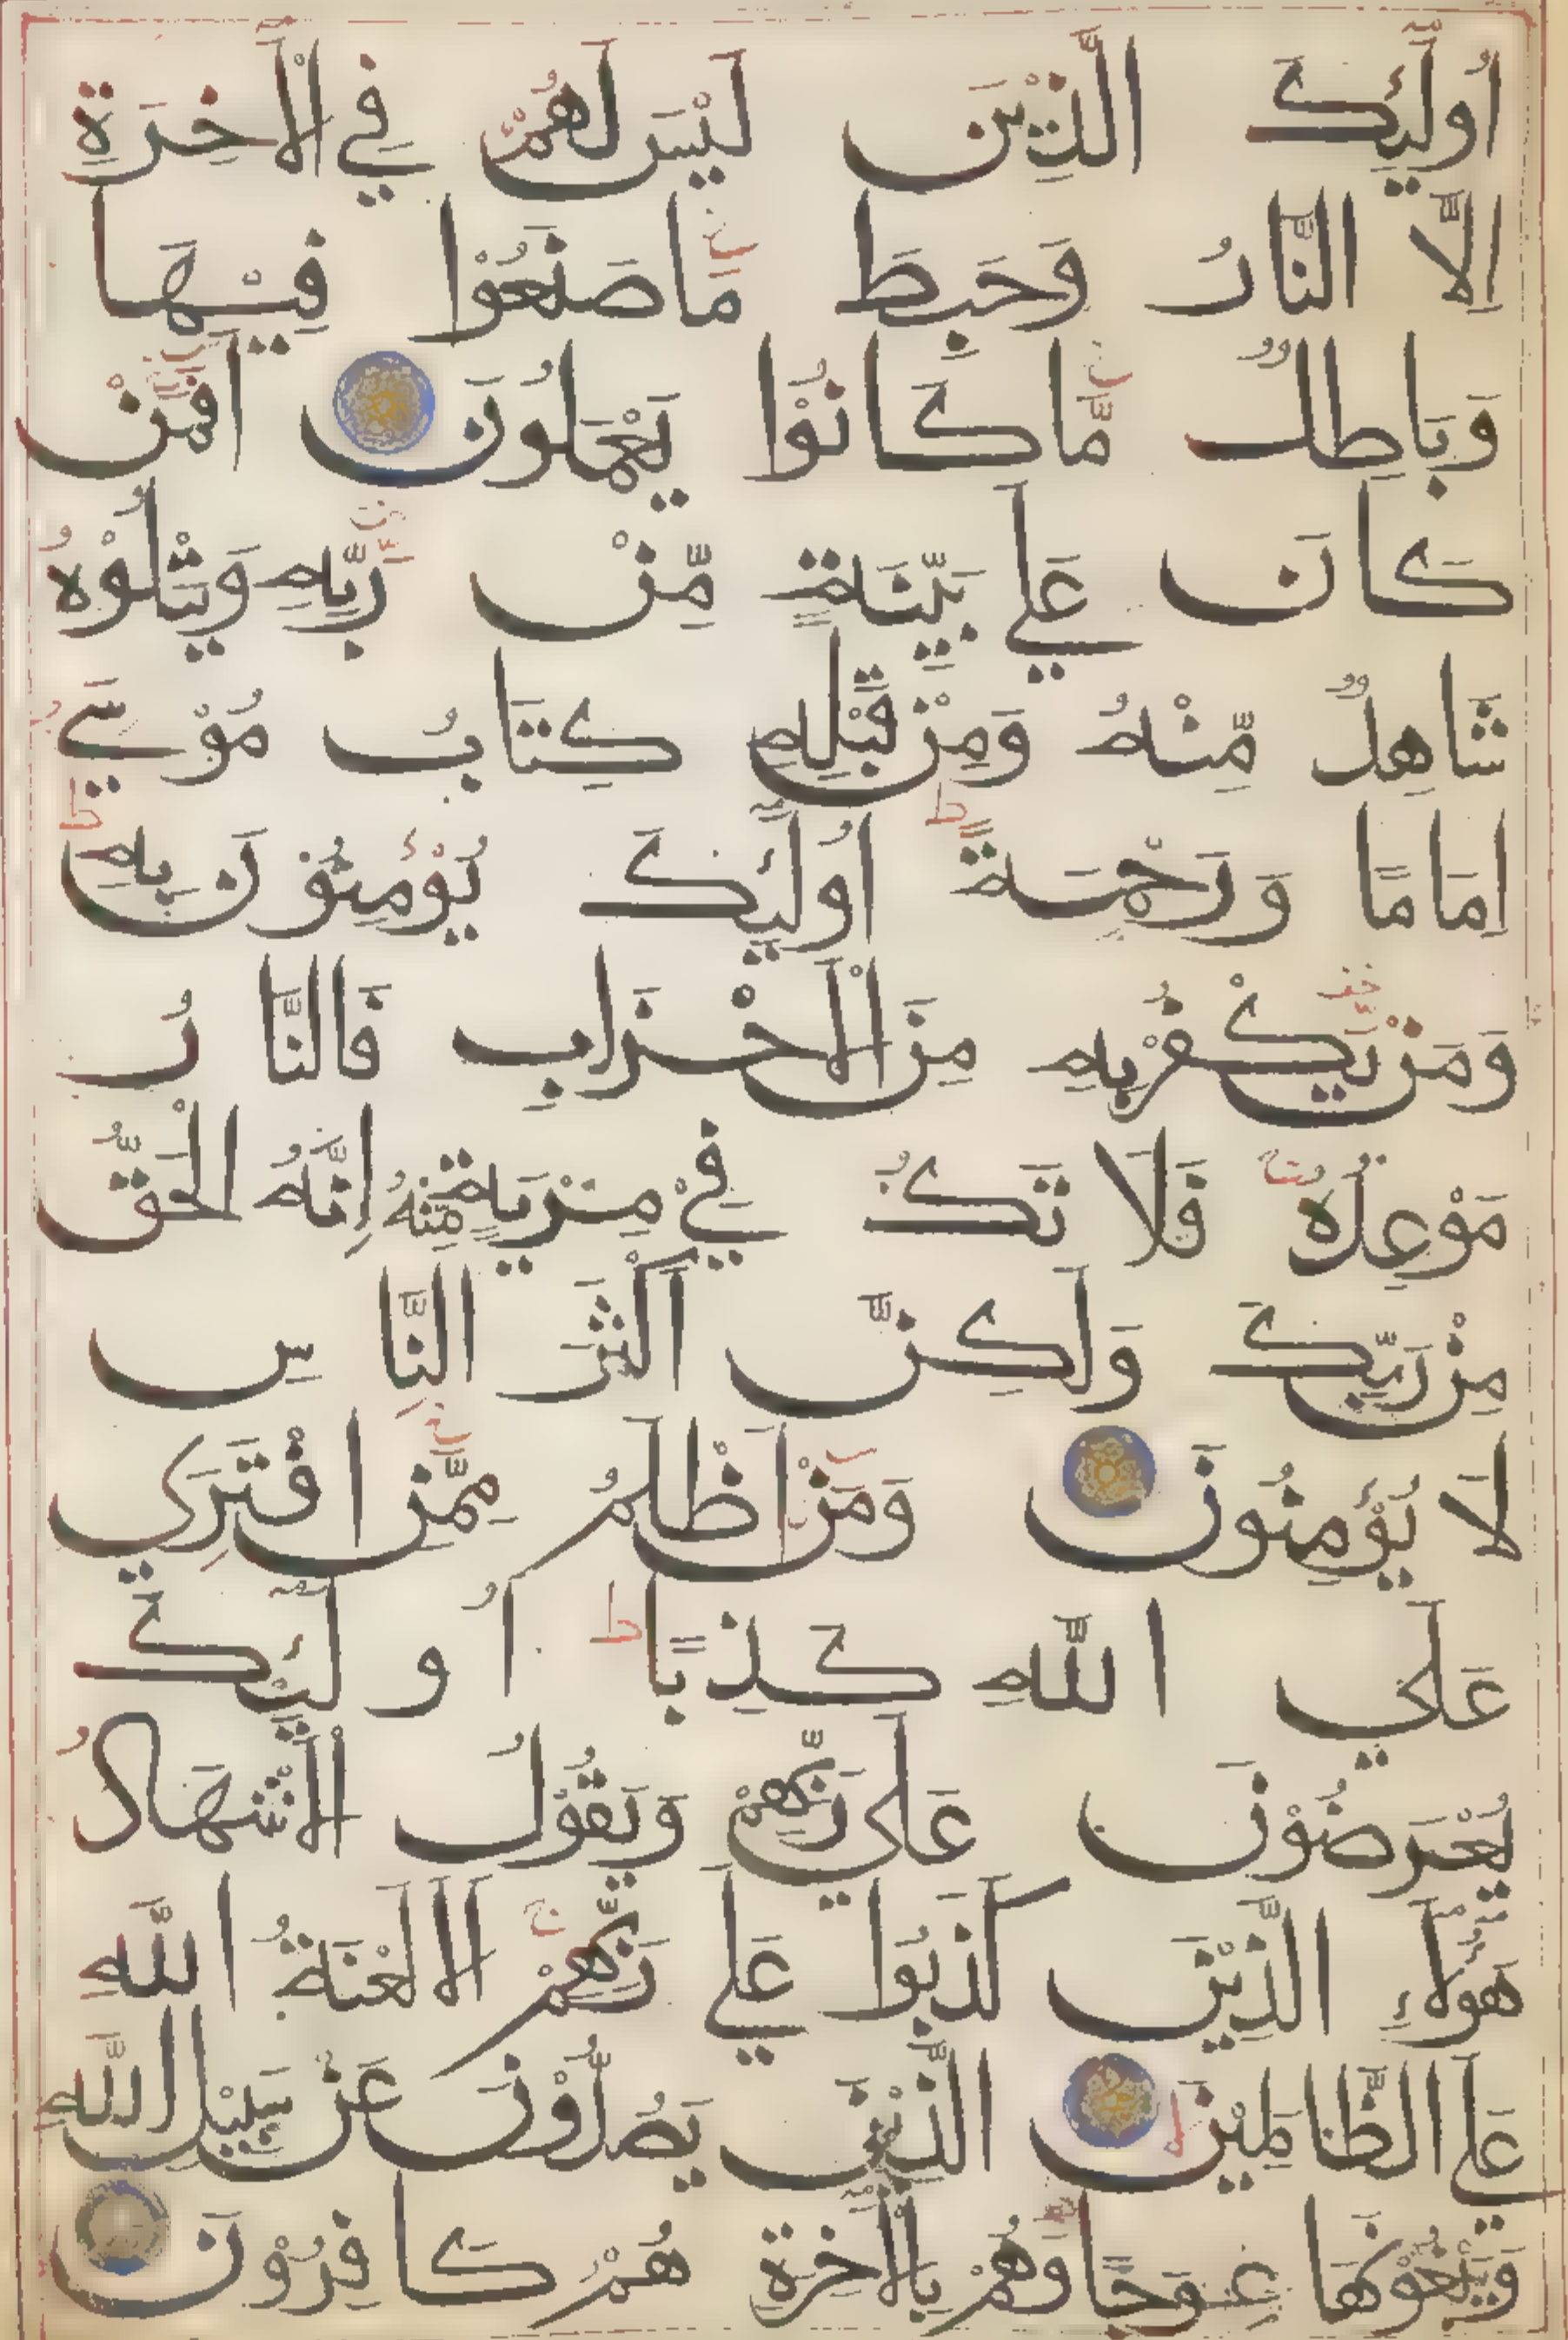 اُولٰٓئِكَ الَّذِيْنَ لَيْسَ لَهُمْ فِي الْاٰخِرَةِ
اِلَّا النَّارُ وَحَبِطَ مَا صَنَعُوْا فِيْهَا
وَبَاطِلٌ مَّا كَانُوْا يَعْمَلُوْنَ اَفَمَنْ
كَانَ عَلٰي بَيِّنَةٍ مِّنْ رَّبِّهٖ وَيَتْلُوْهُ
شَاهِدٌ مِّنْهُ وَمِنْ قَبْلِهٖ كِتَابُ مُوْسٰي
اِمَامًا وَرَحْمَةً اُولٰٓئِكَ يُؤْمِنُوْنَ بِهٖ
وَمَنْ يَّكْفُرْ بِهٖ مِنَ الْاَحْزَابِ فَالنَّارُ
مَوْعِدُهٗ فَلَا تَكُ فِيْ مِرْيَةٍ مِّنْهُ اِنَّهُ الْحَقُّ
مِنْ رَبِّكَ وَلٰكِنَّ اَكْثَرَ النَّاسِ
لَا يُؤْمِنُوْنَ وَمَنْ اَظْلَمُ مِمَّنِ افْتَرٰي
عَلَي اللّٰهِ كَذِبًا اُولٰٓئِكَ
يُعْرَضُوْنَ عَلٰي رَبِّهِمْ وَيَقُوْلُ الْاَشْهَادُ
هٰٓؤُلَآءِ الَّذِيْنَ كَذَبُوْا عَلٰي رَبِّهِمْ اَلَا لَعْنَةُ اللّٰهِ
عَلَي الظَّالِمِيْنَ الَّذِيْنَ يَصُدُّوْنَ عَنْ سَبِيْلِ اللّٰهِ
وَيَبْغُوْنَهَا عِوَجًا وَهُمْ بِالْاٰخِرَةِ هُمْ كَافِرُوْنَ